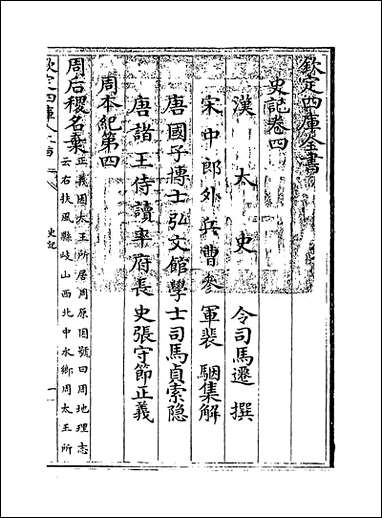 欽定四庫全書
史記卷四
漢太史令司馬遷撰
宋中郎外兵曹參軍裴駰集解
唐國子博士弘文館學士司馬貞索隐
唐諸王侍讀率府長史張守節正義
周本紀第四
周后稷名棄
正義因太王所居周原因號曰周地理志
云右扶風縣岐山西北中水鄉周太王所
欽定四庫全書
史記
一